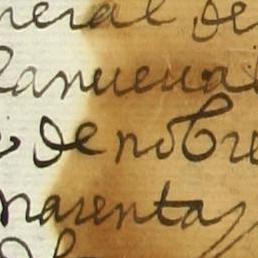 neral de
lanueual
de nobre
narenta